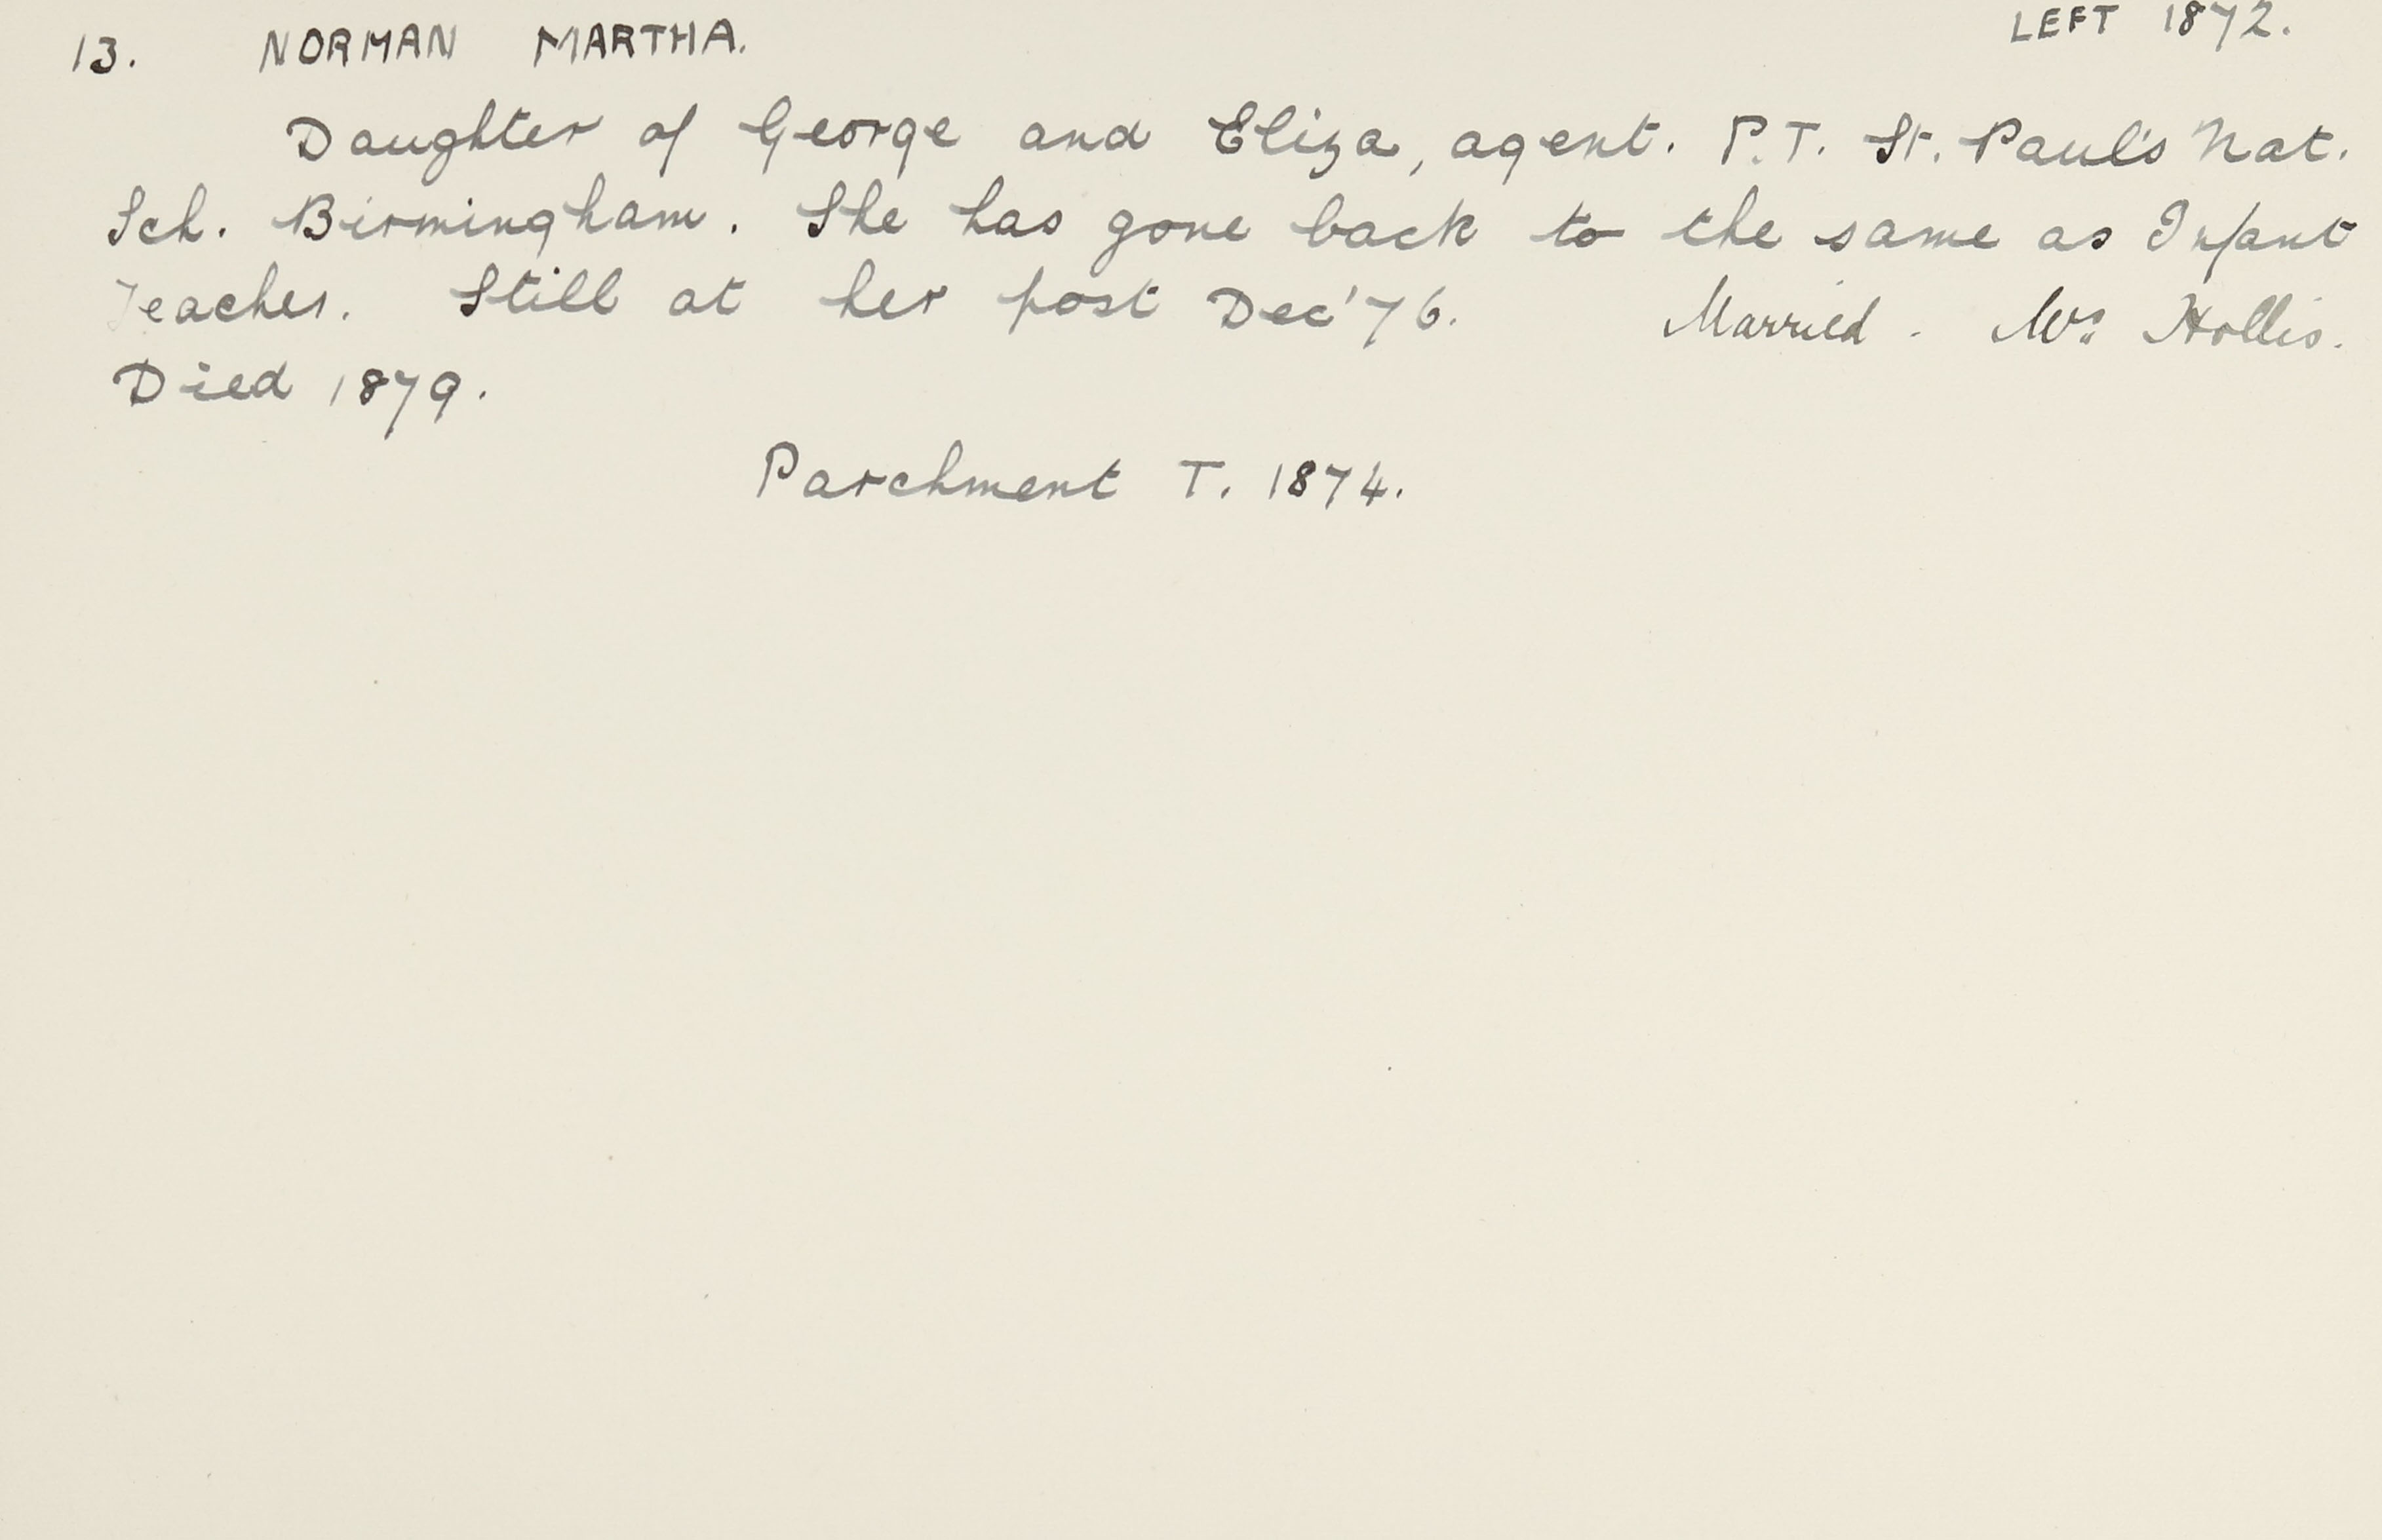 13. NORMAN MARTHA. LEFT 1872.
Daughter of George and Eliza, agent. P.T. St. Paul's Nat.
Sch. Birmingham. She has gone back to the same as Infant
Teacher. Still at her post Dec '76. Married. Mrs Hollis.
Died 1879.
Parchment T. 1874.